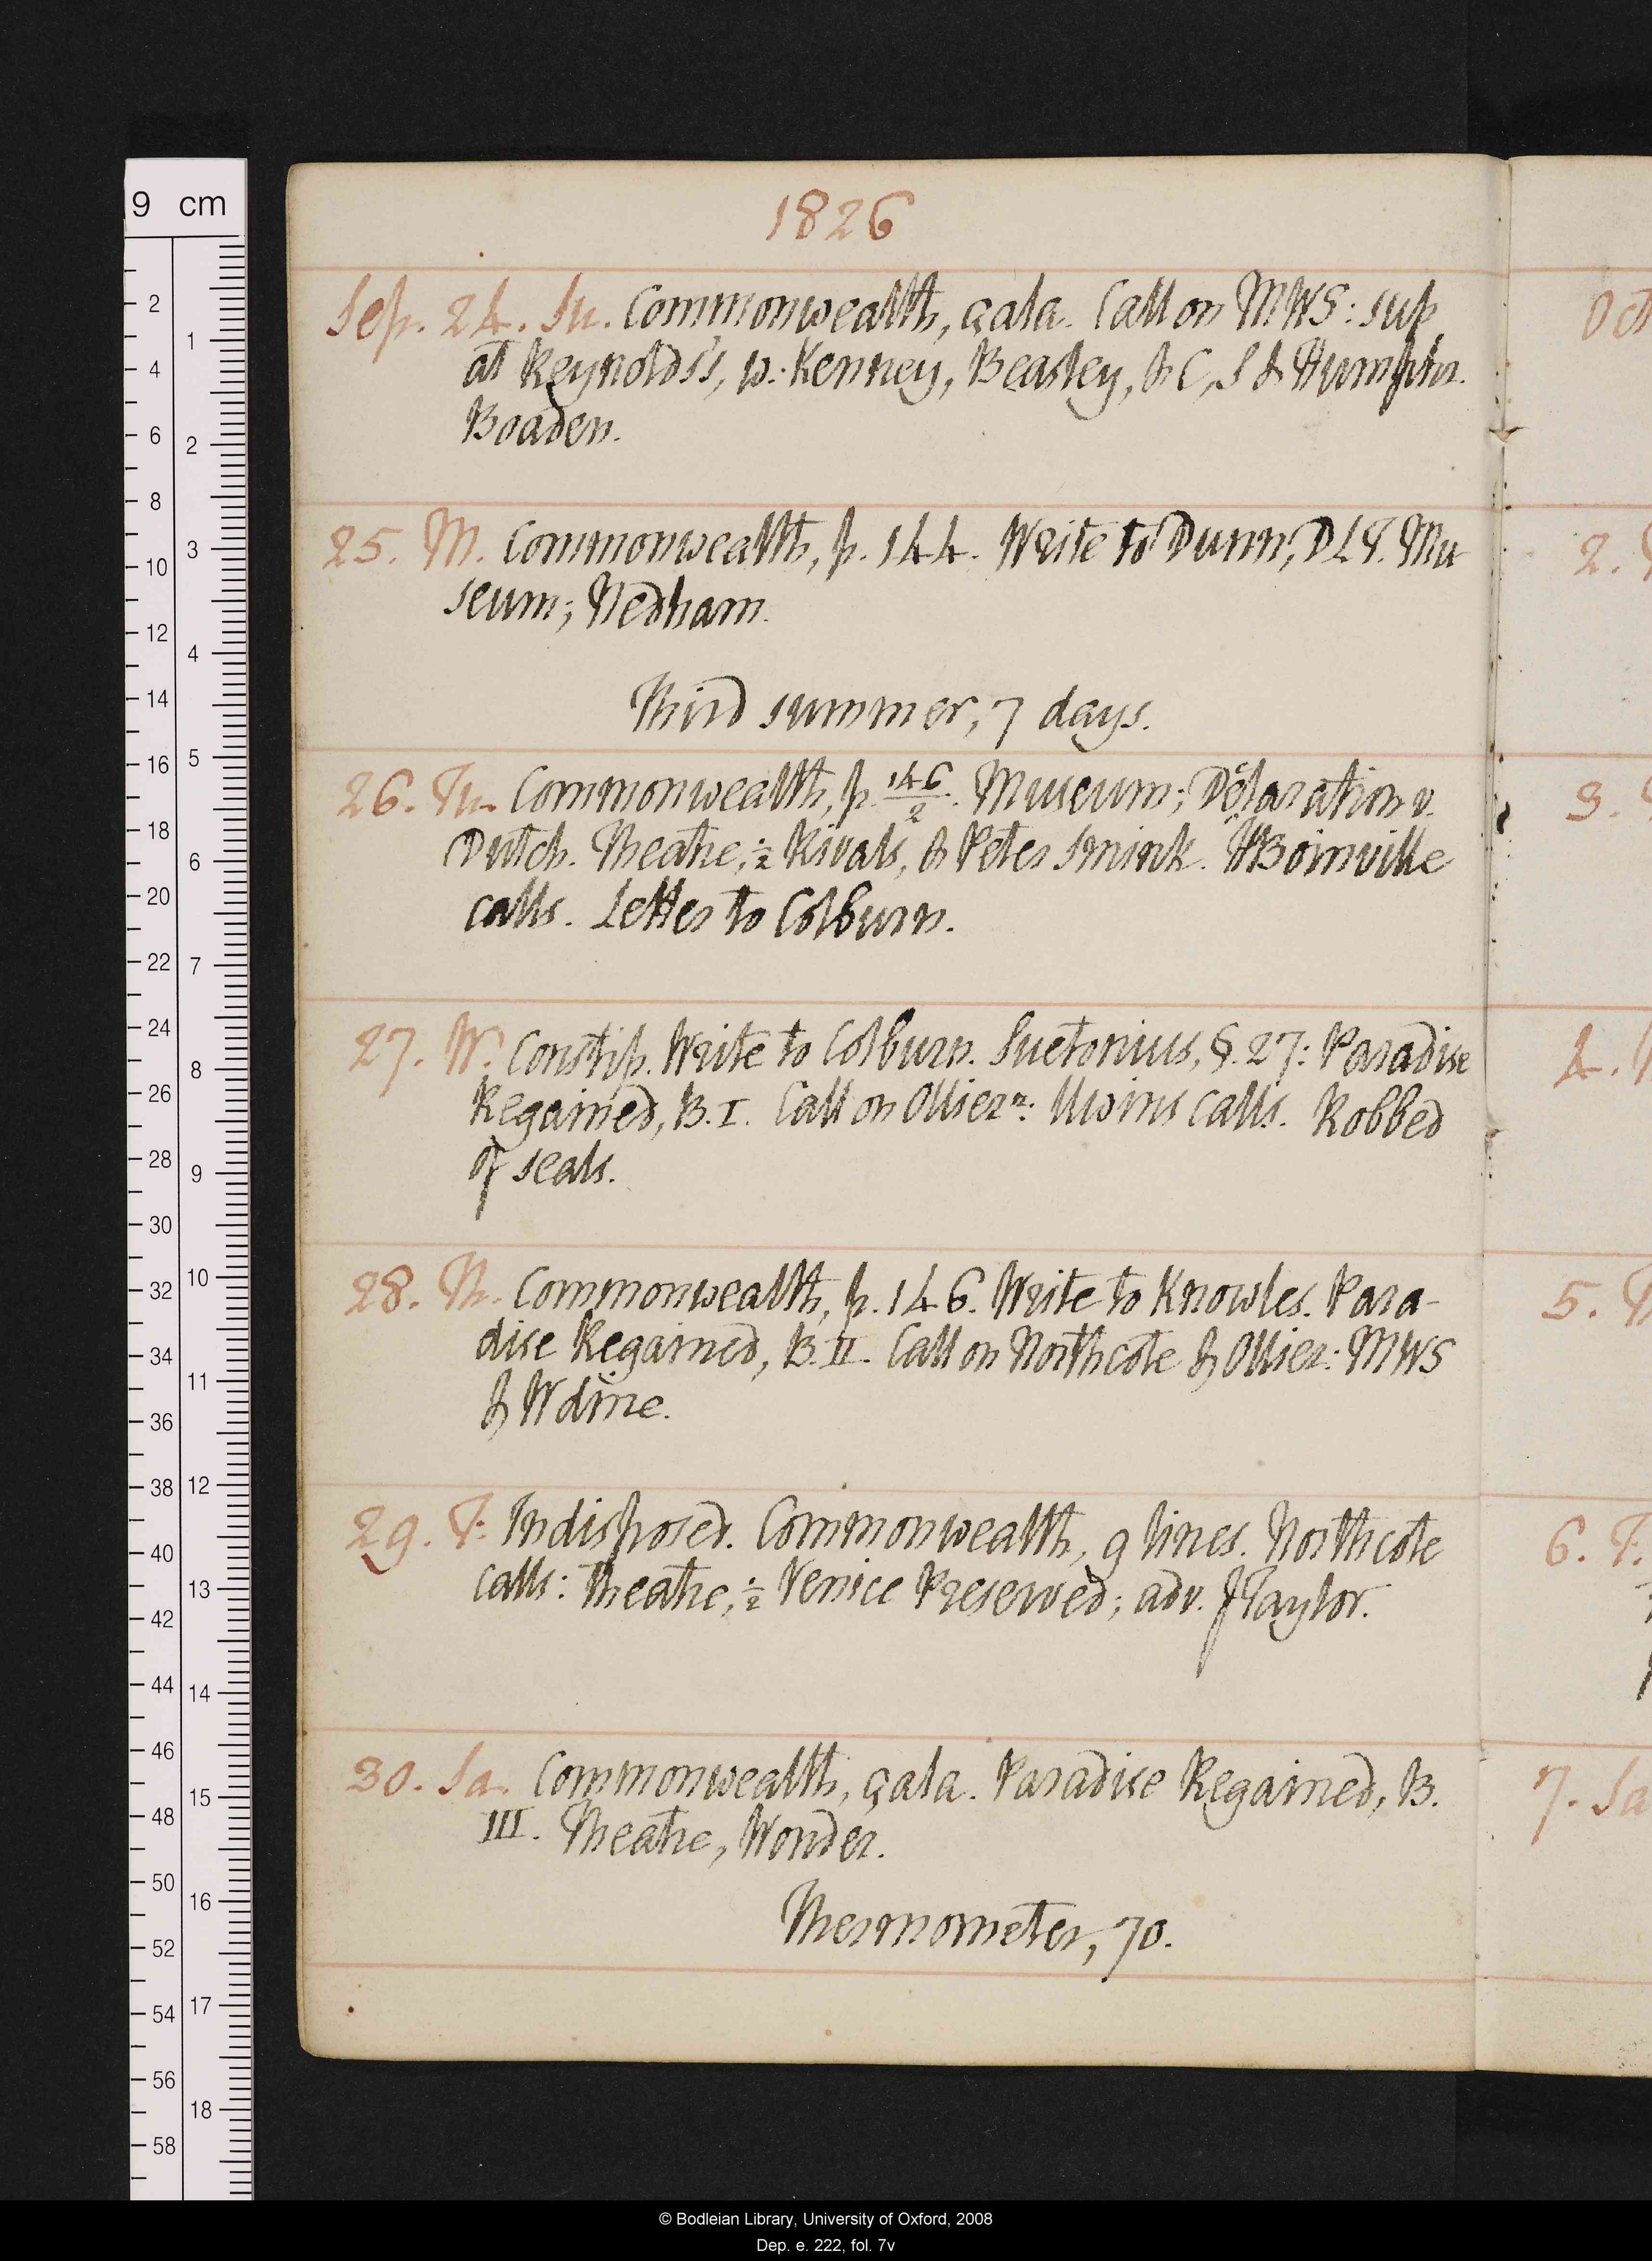 1826
Sep. 24. Su. Commonwealth, çala. Call on MWS: sup
at Reynolds's, w. Kenney, Beazley, & C, S & Humphr.
Boaden.
25. M. Commonwealth, p. 144. Write to Dunn, DLT. Mu
seum; Nedham.
Third summer, 7 days.
26. Tu. Commonwealth, p. 146/2. Museum; Declaration v.
Dutch. Theatre, ½ Rivals, & Peter Smink. HBoinville
calls. Letter to Colburn.
27. W. Constip. Write to Colburn. Suetonius, §. 27: Paradise
Regained, B. I. Call on Ollier n: Uwins calls. Robbed
of seals.
28. Th. Commonwealth, p. 146. Write to Knowles. Para-
dise Regained, B. II. Call on Northcote & Ollier: MWS
& W dine.
29. F. Indisposed. Commonwealth, 9 lines. Northcote
calls: Theatre, ½ Venice Preserved; adv. JTaylor.
30. Sa. Commonwealth, çala. Paradise Regained, B.
III. Theatre, Wonder.
Thermometer, 70.
Oct
2.
3.
4.
5. T
6. F.
7. Sa
9 cm
2
4
6
8
10
12
14
16
18
20
22
24
26
28
30
32
34
36
38
40
42
44
46
48
50
52
54
56
58
1
2
3
4
5
6
7
8
9
10
11
12
13
14
15
16
17
18
© Bodleian Library, University of Oxford, 2008
Dep. e. 222, fol. 7v